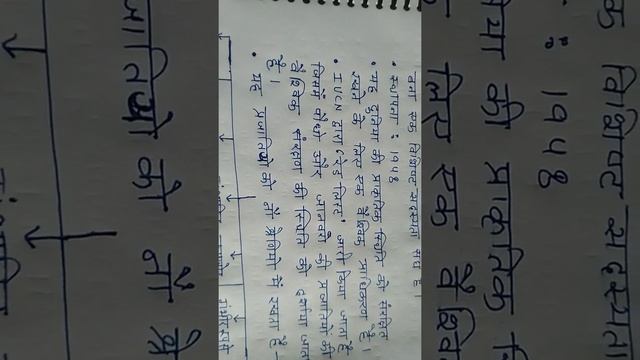 बना एक विशिष्ट सदस्यता संघ है।
• स्थापना : १९४८
• यह दुनिया की प्राकृतिक स्थिति को संरक्षित
रखने के लिए एक वैश्विक प्राधिकरण है।
• IUCN द्वारा 'रेड लिस्ट' जारी किया जाता है
जिसमें पौधो और जानवरों की प्रजातियों की
वैश्विक संरक्षण की स्थिति को दर्शाया जाता
है।
• यह प्रजातियों को नौ श्रेणियों में रखता है -